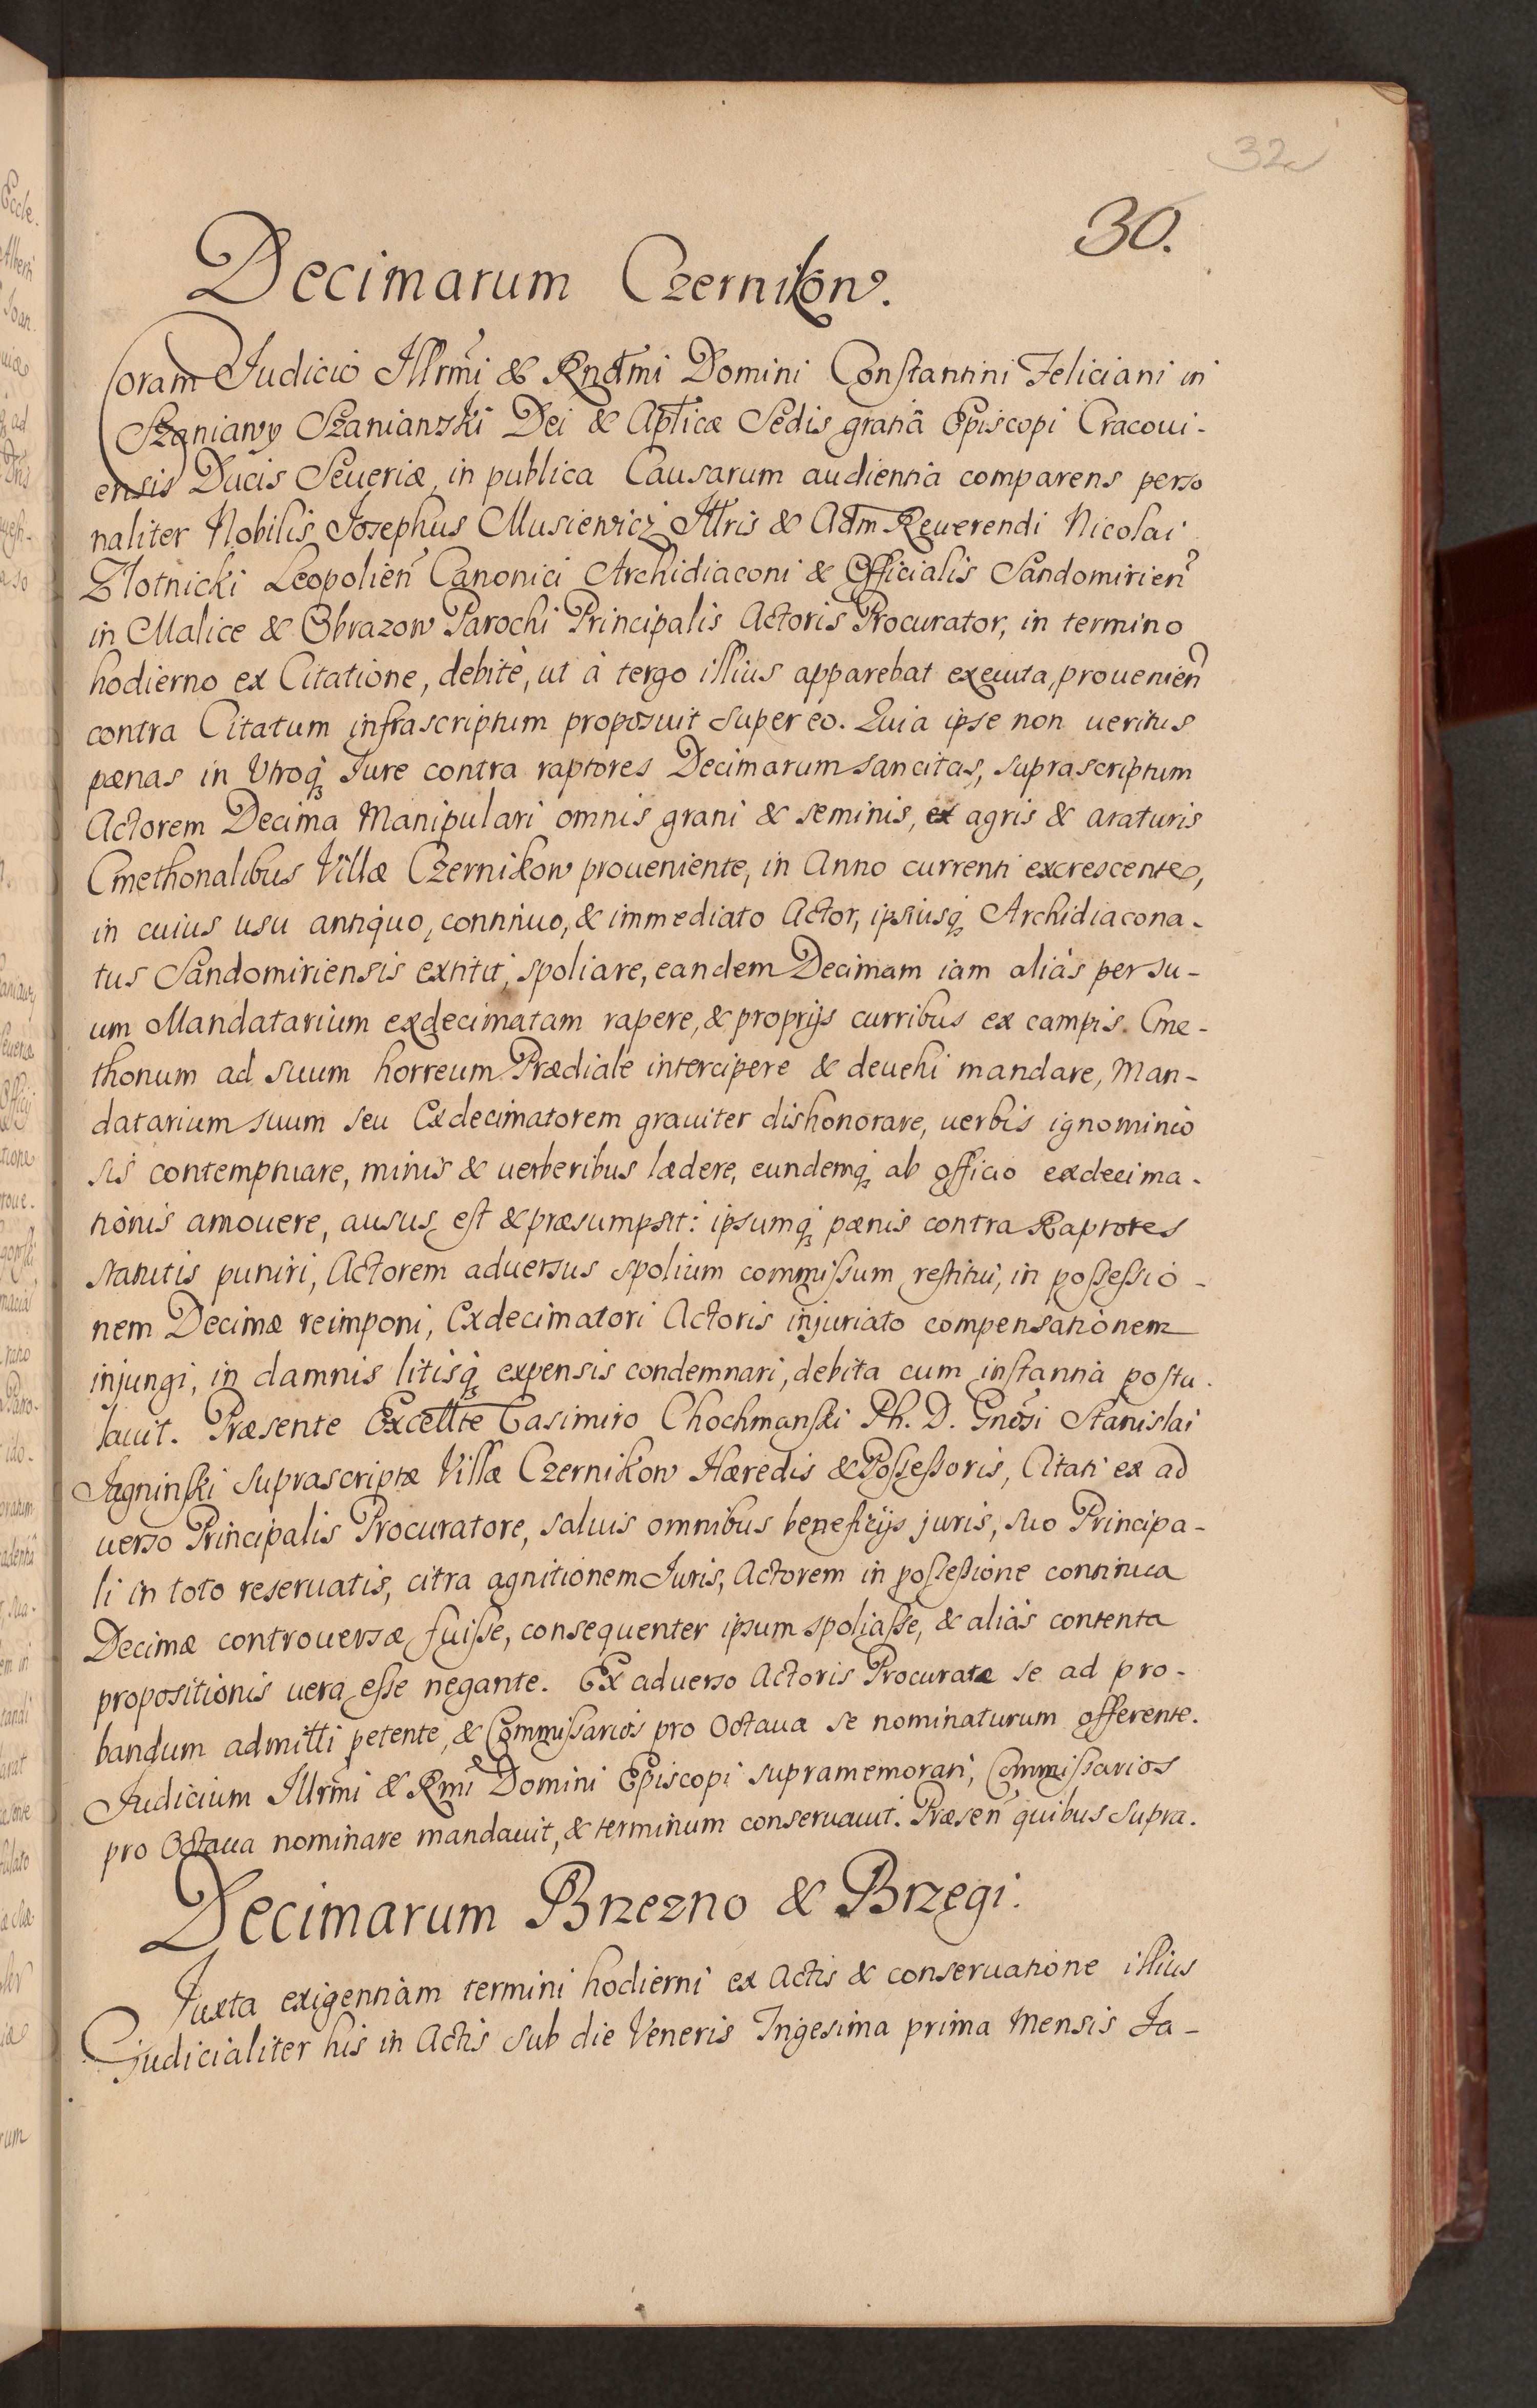 32
30.
Decimarum Czernikow.
Coram Judicio Illrmi & Rndmi Domini Constantini Feliciani in
Szaniawy Szaniawski Dei & Aplicæ Sedis gratiâ Episcopi Cracoui-
ensis Ducis Seueriæ, in publica Causarum audientia comparens perso
naliter Nobilis Josephus Musiewicz Illris & Adm Reuerendi Nicolai
Złotnicki Leopolien Canonici Archidiaconi & Officialis Sandomirien
in Malice & Obrazow Parochi Principalis Actoris Procurator, in termino
hodierno ex Citatione, debitè, ut à tergo illius apparebat exeuuta, prouenien
contra Citatum infrascriptum proposuit super eo. Quia ipse non ueritus
pænas in Utroq Jure contra raptores Decimarum sancitas, suprascriptum
Actorem Decima Manipulari omnis grani & seminis, ex agris & araturis
Cmethonalibus Villæ Czernikow proueniente, in Anno currenti excrescente,
in cuius usu antiquo, continuo, & immediato Actor, ipsiusq Archidiacona-
tus Sandomiriensis extitit, spoliare, eandem Decimam iam aliàs per su-
um Mandatarium exdecimatam rapere, & proprijs curribus ex campis Cme-
thonum ad suum horreum Prædiale intercipere & deuehi mandare, Man-
datarium suum seu Exdecimatorem grauiter dishonorare, uerbis ignominio
sis contemptuare, minis & uerberibus lædere, eundemq ab officio exdecima-
tionis amouere, ausus est & præsumpsit: ipsumq pænis contra Raptores
statutis puniri, Actorem aduersus spolium commissum restitui, in possessio-
nem Decimæ reimponi, Exdecimatori Actoris injuriato compensationem
injungi, in damnis litisq expensis condemnari, debita cum instantia postu-
lauit. Præsente Excellte Casimiro Chochmanski Ph. D. Gnosi Stanislai
Jagninski suprascriptæ Villæ Czernikow Hæredis & Possessoris, Citati ex ad
uerso Principalis Procuratore, saluis omnibus beneficijs juris, suo Principa-
li in toto reseruatis, citra agnitionem Juris, Actorem in possessione continua
Decimæ controuersæ fuisse, consequenter ipsum spoliasse, & aliàs contenta
propositionis uera esse negante. Ex aduerso Actoris Procurate se ad pro-
bandum admitti petente, & Commissarios pro Octaua se nominaturum offerente.
Judicium Illrmi & Rmi Domini Episcopi supramemorati, Commissarios
pro Octaua nominare mandauit, & terminum conseruauit. Præsen quibus supra.
Decimarum Brzezno & Brzegi.
Juxta exigentiam termini hodierni ex Actis & conseruatione illius
judicialiter his in Actis sub die Veneris Trigesima prima Mensis Ja-